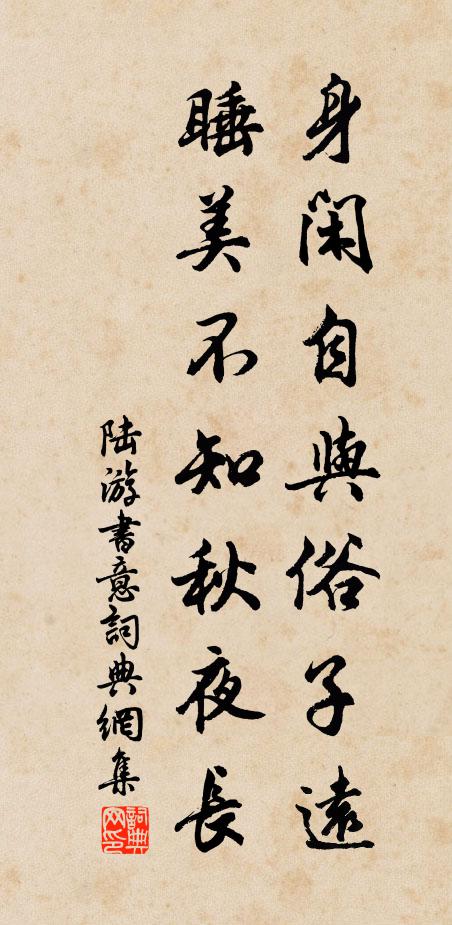 身閑自與俗子遠
睡美不知秋夜長
陆游書意詞典網集
詞典網印